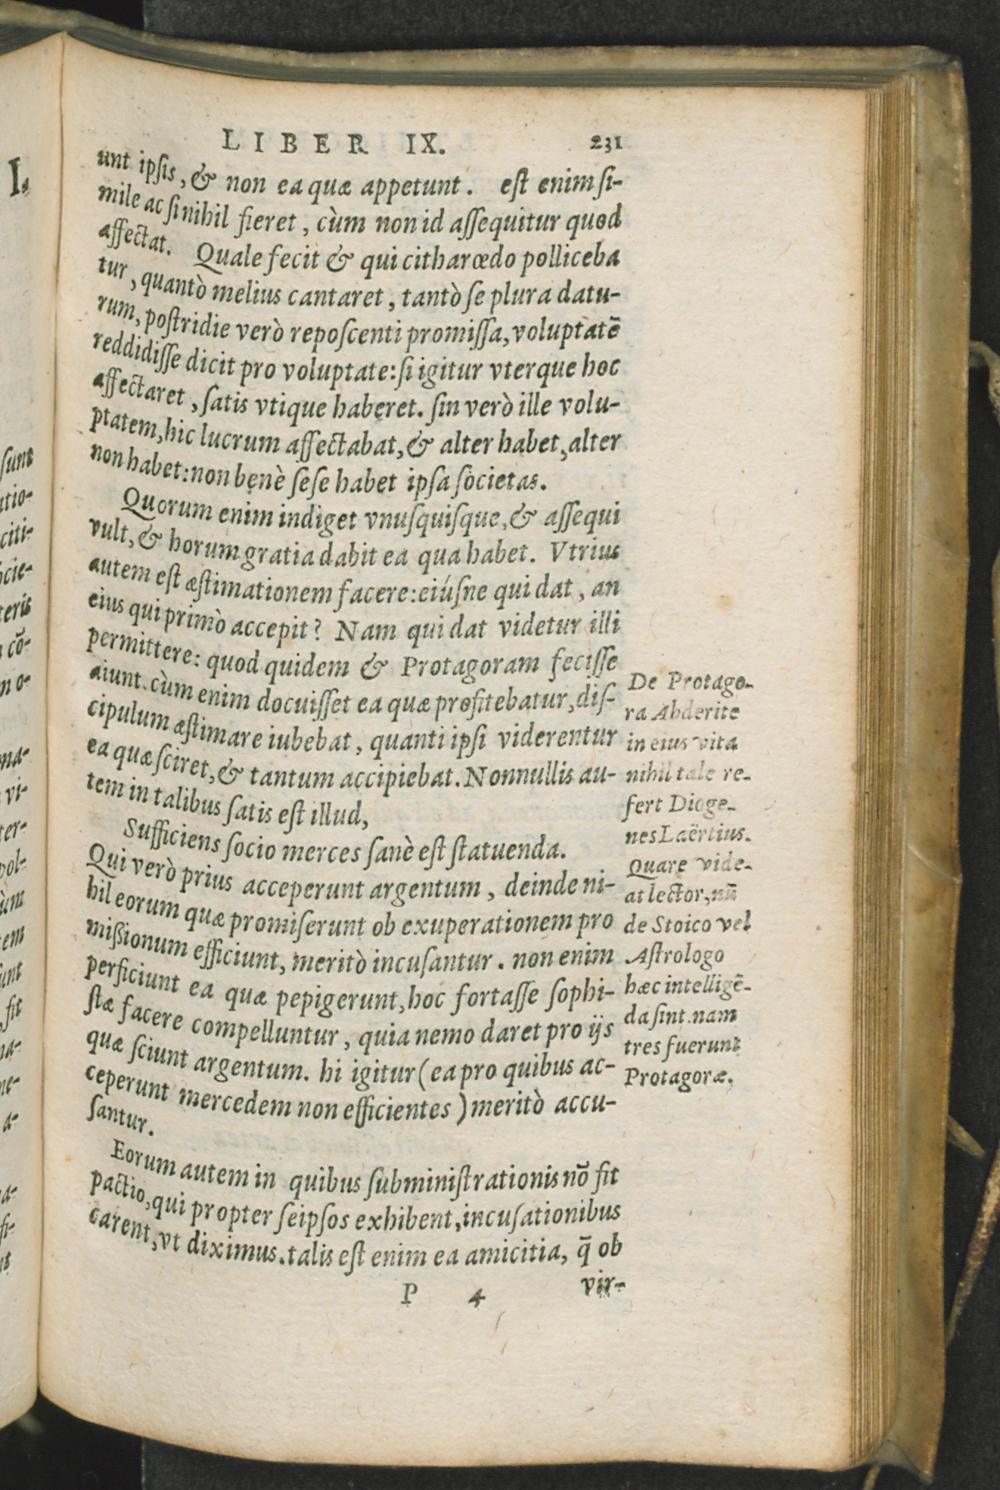 LIBER IX. 231
unt ipsis, & non ea quæ appetunt. est enim si-
mile ac si nihil fieret, cùm non id assequitur quod
affectat. Quale fecit & qui citharœdo polliceba
tur, quantò melius cantaret, tantò se plura datu-
rum, postridie verò reposcenti promissa, voluptatẽ
reddidisse dicit pro voluptate: si igitur vterque hoc
affectaret, satis vtique haberet. sin verò ille volu-
ptatem, hic lucrum affectabat, & alter habet, alter
non habet: non benè sese habet ipsa societas.
Quorum enim indiget vnusquisque, & assequi
vult, & horum gratia dabit ea qua habet. Vtrius
autem est æstimationem facere: eiúsne qui dat, an
eius qui primò accepit? Nam qui dat videtur illi
permittere: quod quidem & Protagoram fecisse
aiunt. cùm enim docuisset ea quæ profitebatur, dis-
cipulum æstimare iubebat, quanti ipsi viderentur
ea quæ sciret, & tantum accipiebat. Nonnullis au-
tem in talibus satis est illud,
Sufficiens socio merces sanè est statuenda.
Qui verò prius acceperunt argentum, deinde ni-
hil eorum quæ promiserunt ob exuperationem pro
missionum efficiunt, meritò incusantur. non enim
perficiunt ea quæ pepigerunt, hoc fortasse sophi-
stæ facere compelluntur, quia nemo daret pro ijs
quæ sciunt argentum. hi igitur (ea pro quibus ac-
ceperunt mercedem non efficientes) meritò accu-
santur.
Eorum autem in quibus subministrationis nõ fit
pactio, qui propter seipsos exhibent, incusationibus
carent, vt diximus. talis est enim ea amicitia, q̃ ob
P 4 vir-
De Protago-
ra Abderite
in eius vita
nihil tale re-
fert Dioge-
nes Laërtius.
Quare vide-
at lector, nũ
de Stoico vel
Astrologo
hæc intelligẽ-
da sint. nam
tres fuerunt
Protagoræ.